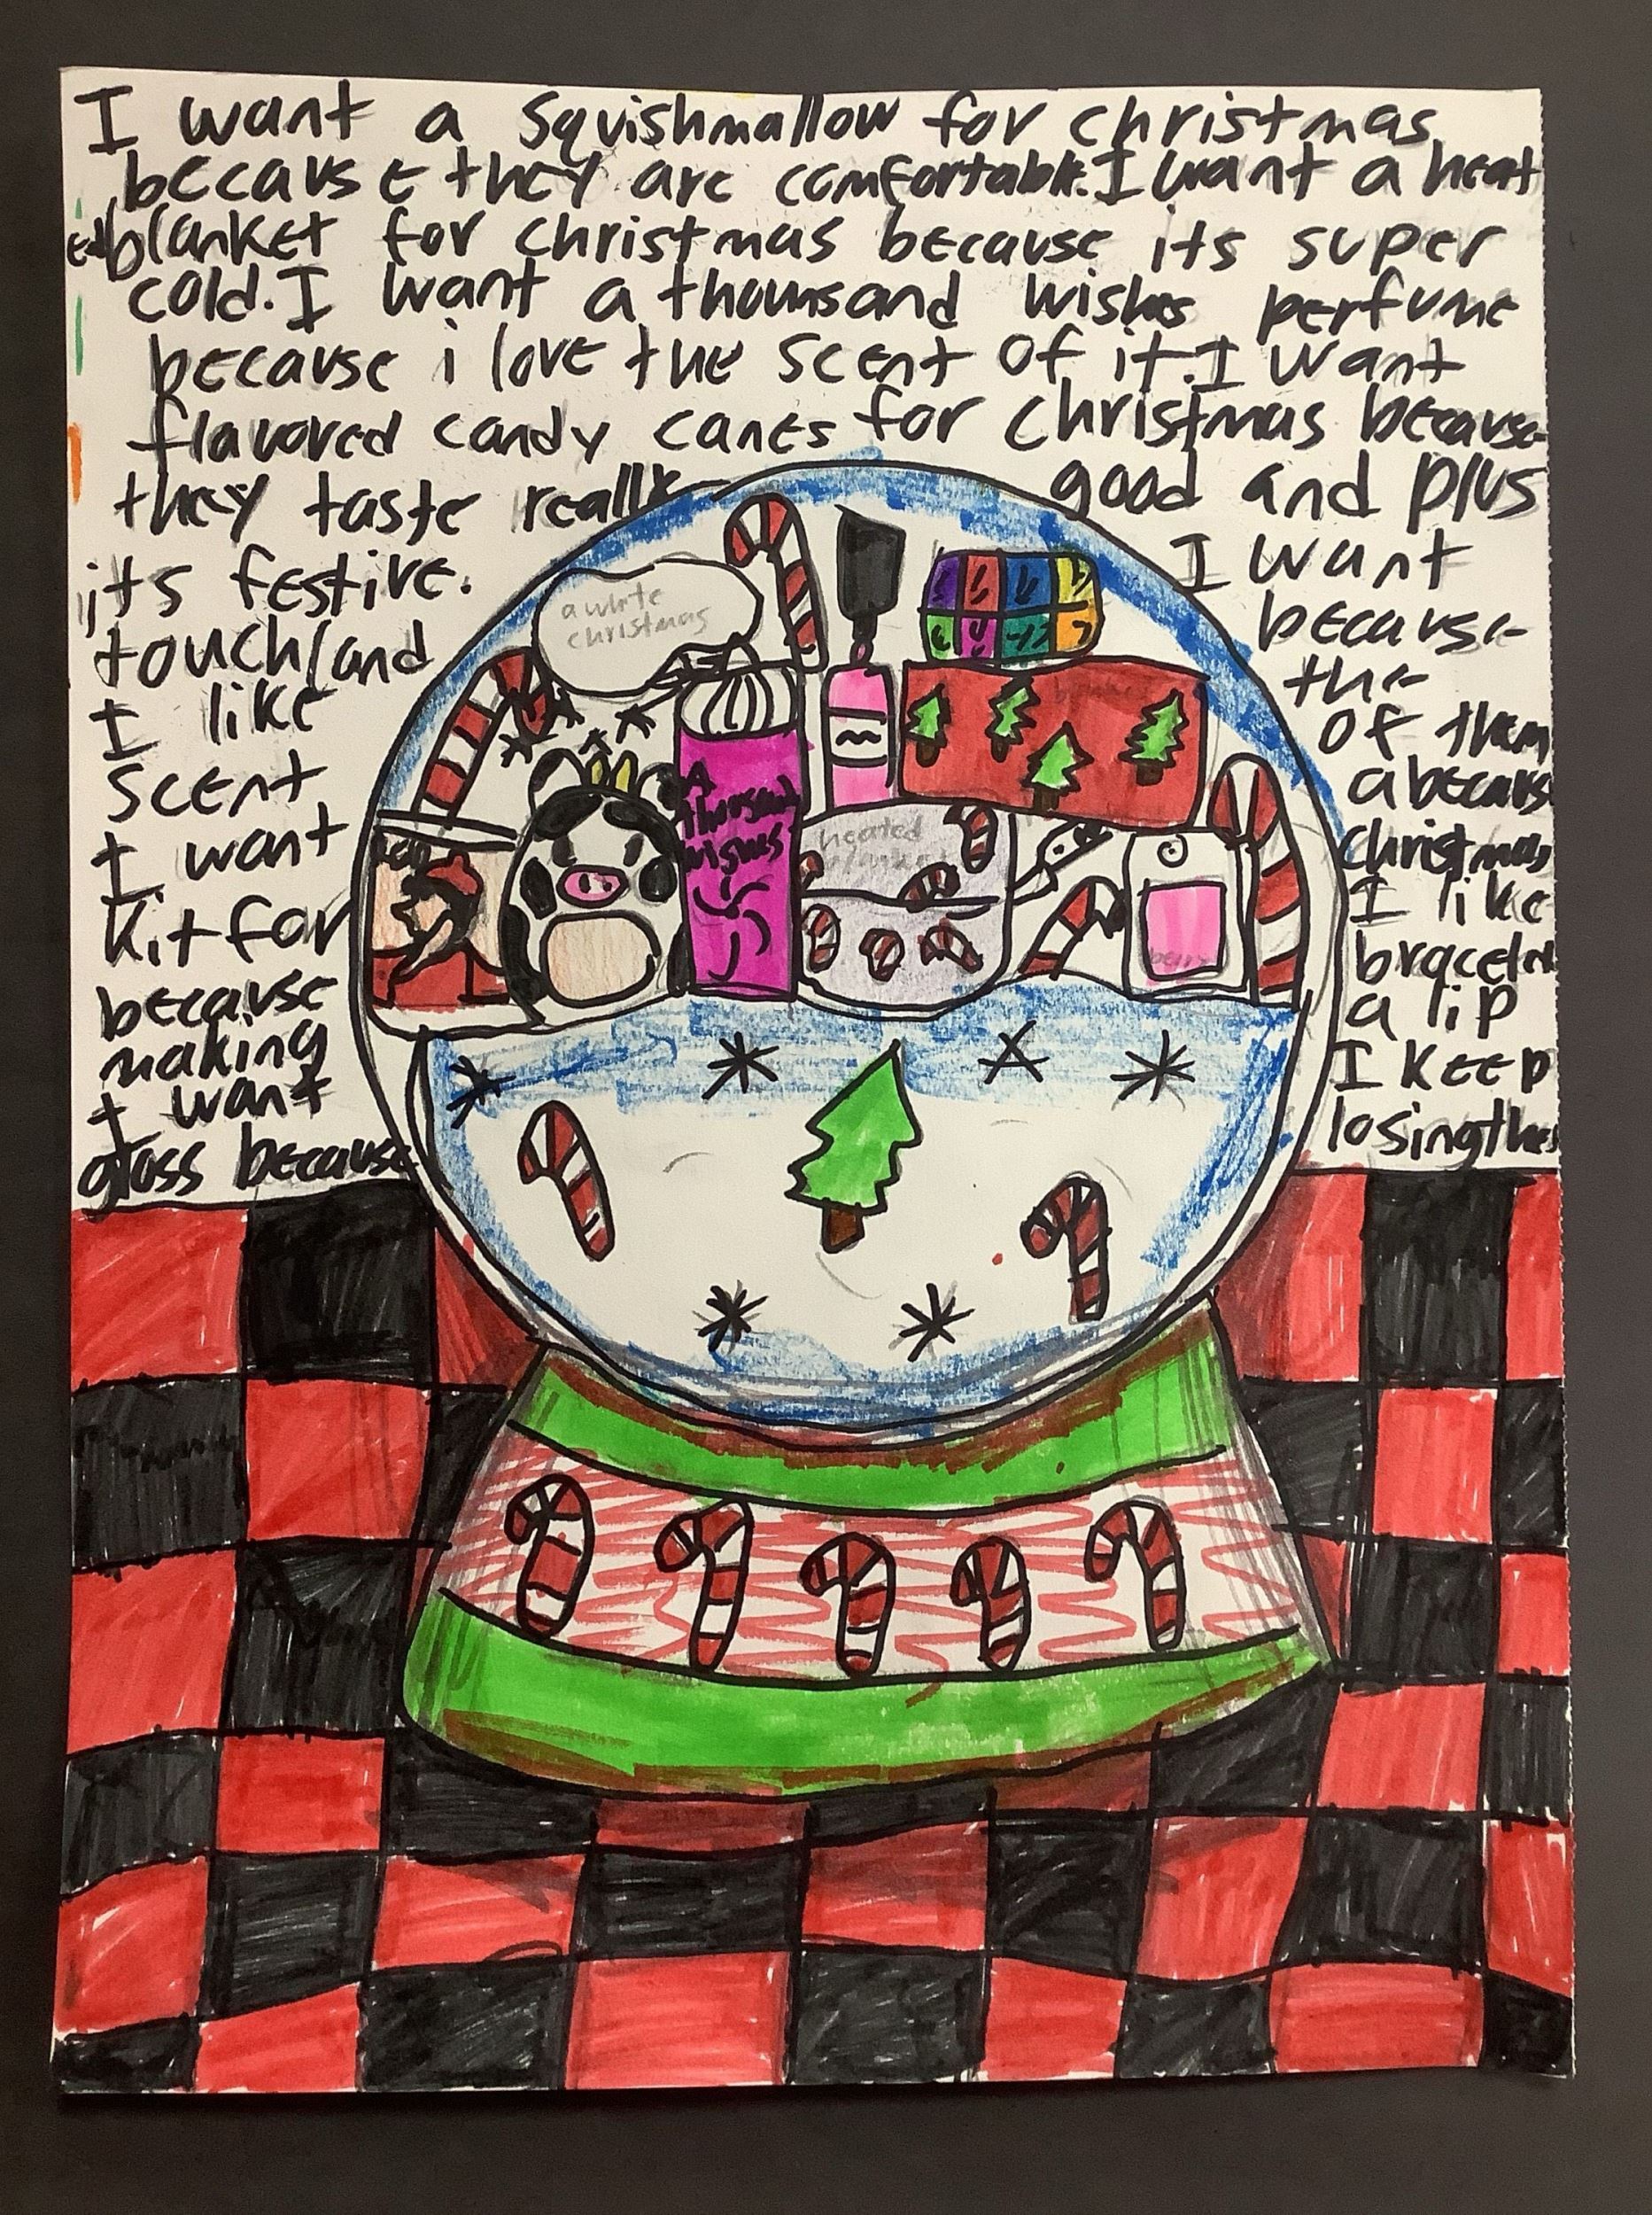 I want a squishmallow for christmas
because they are comfortable. I want a heat
ed blanket for christmas because its super
cold. I want a thounsand wishes perfume
because i love the scent of it. I want
flavored candy canes for christmas because
they taste really good and plus
its festive. I want
touchland because
I like the
scent of them
I want a because
kit for christmas
because I like
making bracelets
I want a lip
gloss because I keep
losing them
a white
christmas
A
thousand
wishes
heated
blanket
berry